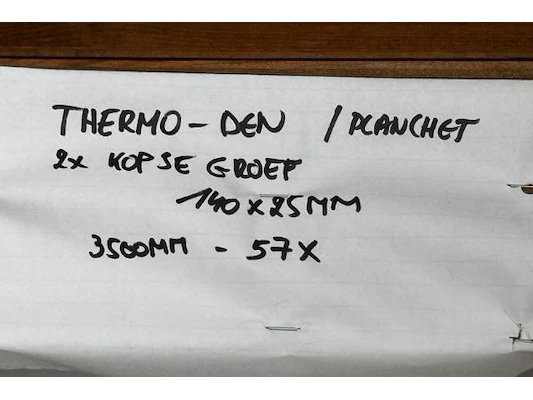 THERMO - DEN / PLANCHET
2x KOPSE GROEF
140 x 25MM
3500MM - 57X